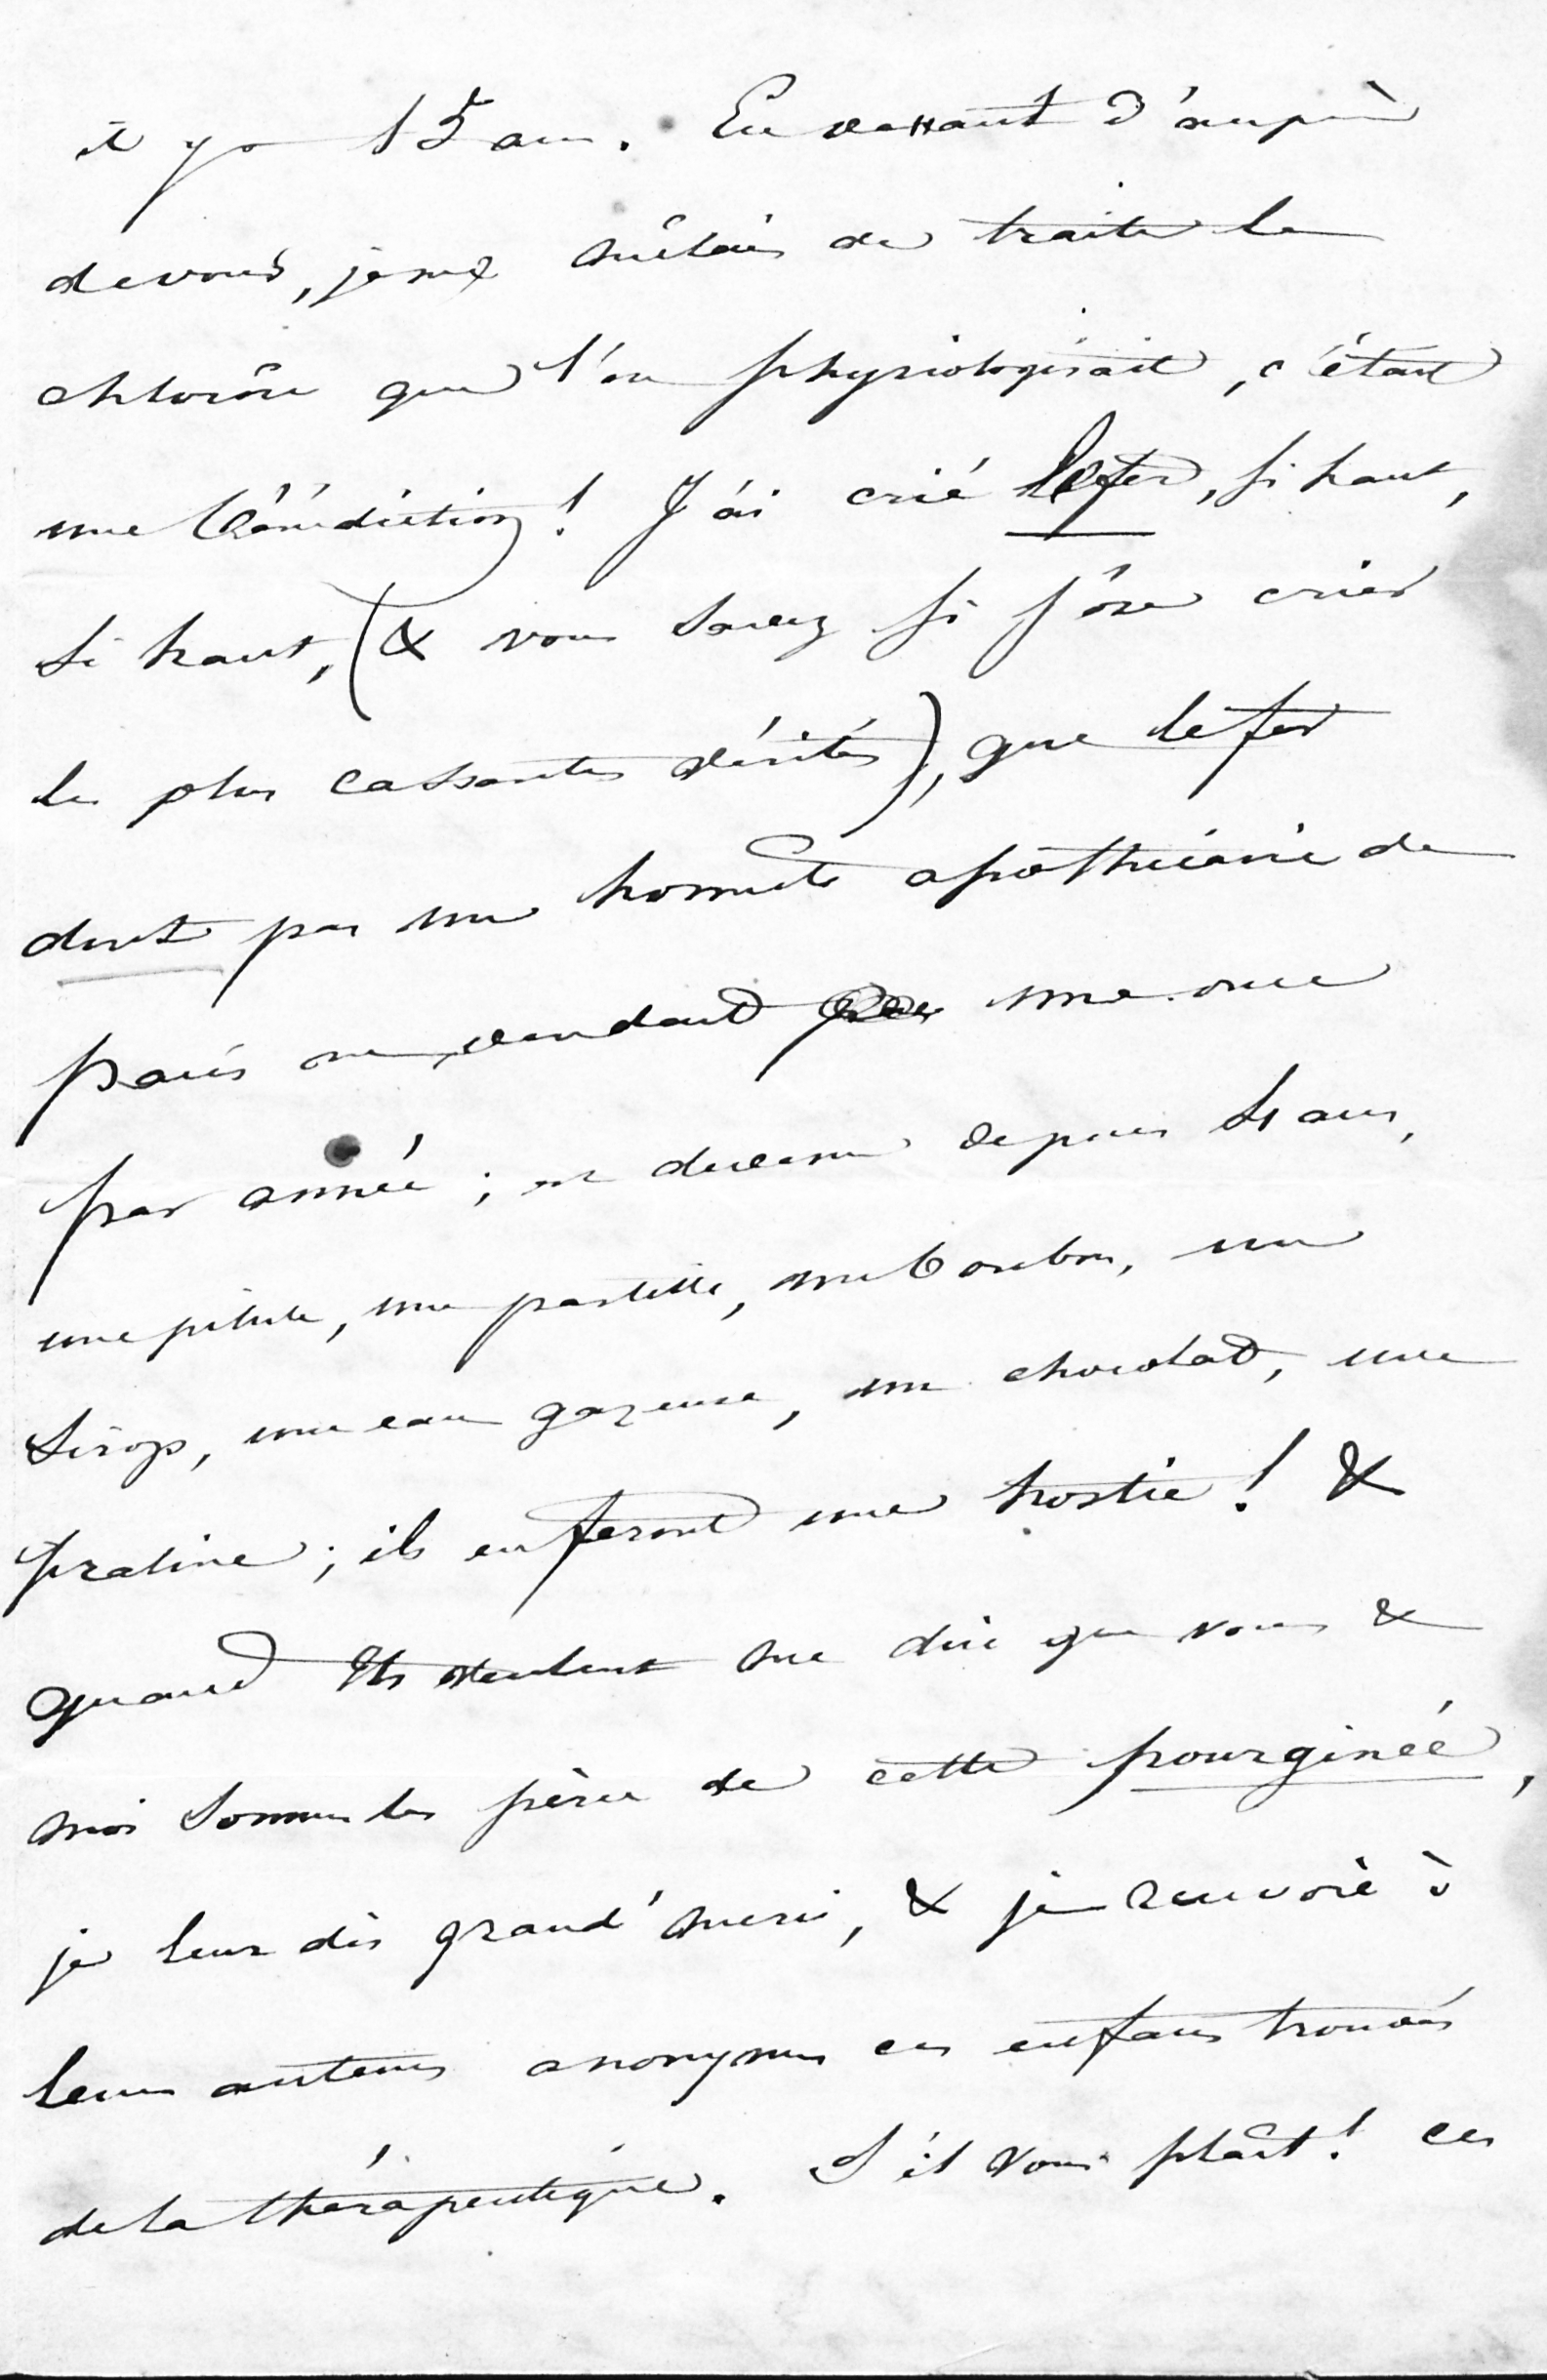 il y a 15 ans. En venant d'auprès
de vous, je me mêlais de traiter la
chlorôse que l'on physiologisait, c'était
une bénédiction! J'ai crié le fer, si haut,
si haut, (& vous savez si j'ose crier
les plus cassantes vérités), que le fer
dont pas un honnête apothicaire de
Paris ne vendait une once
par année; est devenu depuis ans,
une pilule, une pastille, un bonbon, un
sirop, une eau gazeuse, un chocolat, une
praline; ils en feront une hostie! &
quand ils veulent me dire que vous &
moi sommes les pères de cette pourginée,
je leur dis grand'merci, & je renvoie à
leurs auteurs anonymes ces enfans trouvés
de la thérapeutique. S'il vous plaît! ces